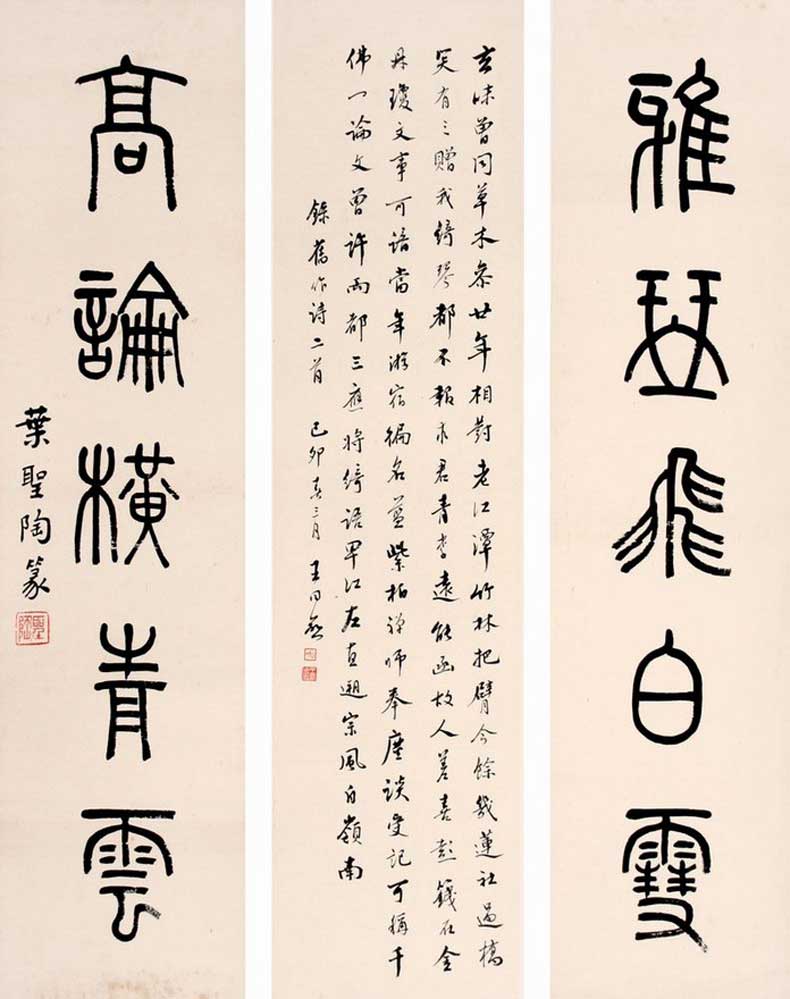 雅琴飛白雪
玄味曾同草木參廿年相對老江潭竹林把臂今餘幾蓮社過橋
笑有三贈我綺琴都不報求君青李遠能函故人喜彭籛在金
丹瓊文事可語當年游宿徧名藍紫柏禪師奉麈談受記可稱千
佛一論文曾許兩都三應將綺語江左直遡宗風自嶺南
錄舊作詩二首 己卯春三月 王同愈
高論橫青雲
葉聖陶篆
聖陶